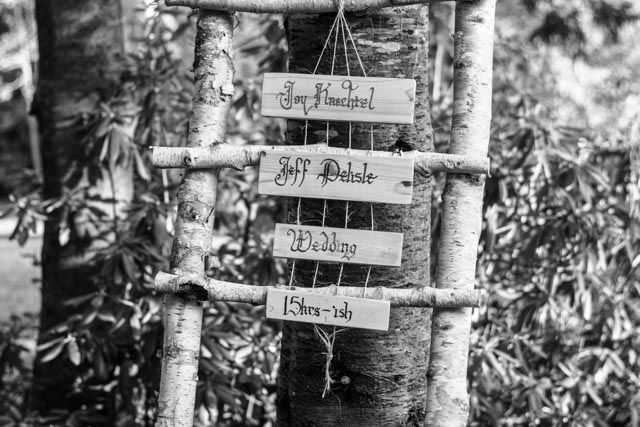 Joy Knechtel
Jeff Pehsle
Wedding
15hrs-ish